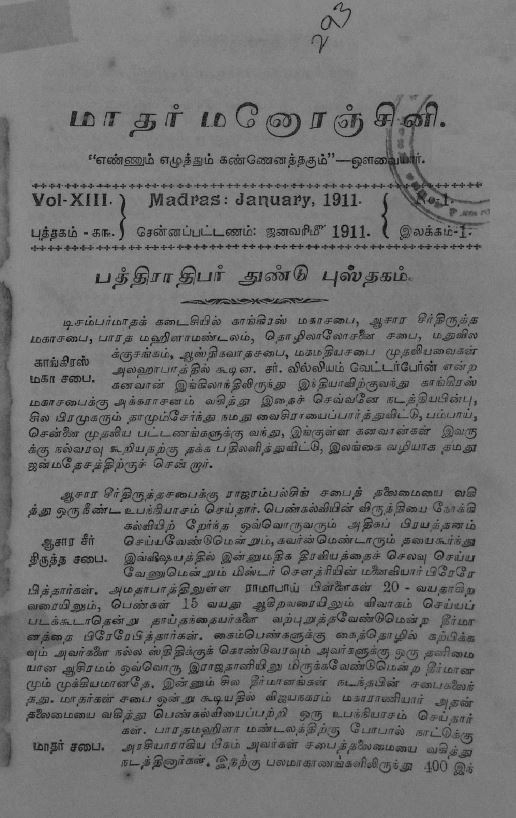 மாதர் மனோரஞ்சினி.
“எண்ணும் எழுத்தும் கண்ணெனத்தகும்”—ஔவையார்.
Vol-XIII. Madras: January, 1911. No-1.
புத்தகம் - கங. சென்னப்பட்டணம்: ஜனவரிமீ 1911. இலக்கம்-1.
பத்திராதிபர் துண்டு புஸ்தகம்.
டிசம்பர்மாதக் கடைசியில் காங்கிரஸ் மகாசபை, ஆசார சீர்திருத்த
மகாசபை, பாரத மஹிளாமண்டலம், தொழிலாலோசனை சபை, மதுவில
க்குசங்கம், ஆஸ்திகவாதசபை, மகமதியசபை முதலியவைகள்
காங்கிரஸ் அலஹாபாத்தில் கூடின. சர். வில்லியம் வெட்டர்பேர்ன் என்ற
மகா சபை. கனவான் இங்கிலாந்திலிருந்து இந்தியாவிற்குவந்து காங்கிரஸ்
மகாசபைக்கு அக்கிராசனம் வகித்து இதைச் செவ்வனே நடத்தியபின்பு,
சில பிரமுகரும் தாமும்சேர்ந்து நமது வைசிராயைப்பார்த்துவிட்டு, பம்பாய்,
சென்னை முதலிய பட்டணங்களுக்கு வந்து, இங்குள்ள கனவான்கள் இவரு
க்கு நல்வரவு கூறியதற்கு தக்க பதிலளித்துவிட்டு, இலங்கை வழியாக தமது
ஜன்மதேசத்திற்குச் சென்றார்.
ஆசார சீர்திருத்தசபைக்கு ராஜரம்பல்சிங் சபைத் தலைமையை வகி
த்து ஒருநீண்ட உபந்யாசம் செய்தார். பெண்கல்வியின் விருத்தியை நோக்கி
கல்வியிற் றேர்ந்த ஒவ்வொருவரும் அதிகப் பிரயத்தனம்
ஆசார சீர் செய்யவேண்டுமென்றும், கவர்ன்மெண்டாரும் தயைகூர்ந்து
திருத்த சபை. இவ்விஷயத்தில் இன்னுமதிக திரவியத்தைச் செலவு செய்ய
வேணுமென்றும் மிஸ்டர் சௌத்ரியின் மனைவியார் பிரேரே
பித்தார்கள். அமதாபாத்திலுள்ள ராமாபாய் பிள்ளைகள் 20 - வயதாகிற
வரையிலும், பெண்கள் 15 வயது ஆகிறவரையிலும் விவாகம் செய்யப்
படக்கூடாதென்று தாய்தந்தையர்களை வற்புறுத்தவேண்டுமென்ற நீர்மா
னத்தை பிரேரேபித்தார்கள். கைம்பெண்களுக்கு கைத்தொழில் கற்பிக்க
வும் அவர்களை நல்ல ஸ்திதிக்குக் கொண்டுவரவும் அவர்களுக்கு ஒரு தனிமை
யான ஆசிரமம் ஒவ்வொரு இராஜதானியிலு மிருக்கவேண்டுமென்ற நீர்மான
மும் முக்கியமானதே. இன்னும் சில நீர்மானங்கள் நடந்தபின் சபைகலைந்
தது. மாதர்கள் சபை ஒன்று கூடியதில் விஜயநகரம் மகாராணியார் அதன்
தலைமையை வகித்து பெண்கல்வியைப்பற்றி ஒரு உபந்யாசம் செய்தார்
கள். பாரதமஹிளா மண்டலத்திற்கு போபால் நாட்டுக்கு
மாதர் சபை. அரசியாராகிய பிகம் அவர்கள் சபைத்தலைமையை வகித்து
நடத்தினார்கள். இதற்கு பலமாகாணங்களிலிருந்து 400 இந்